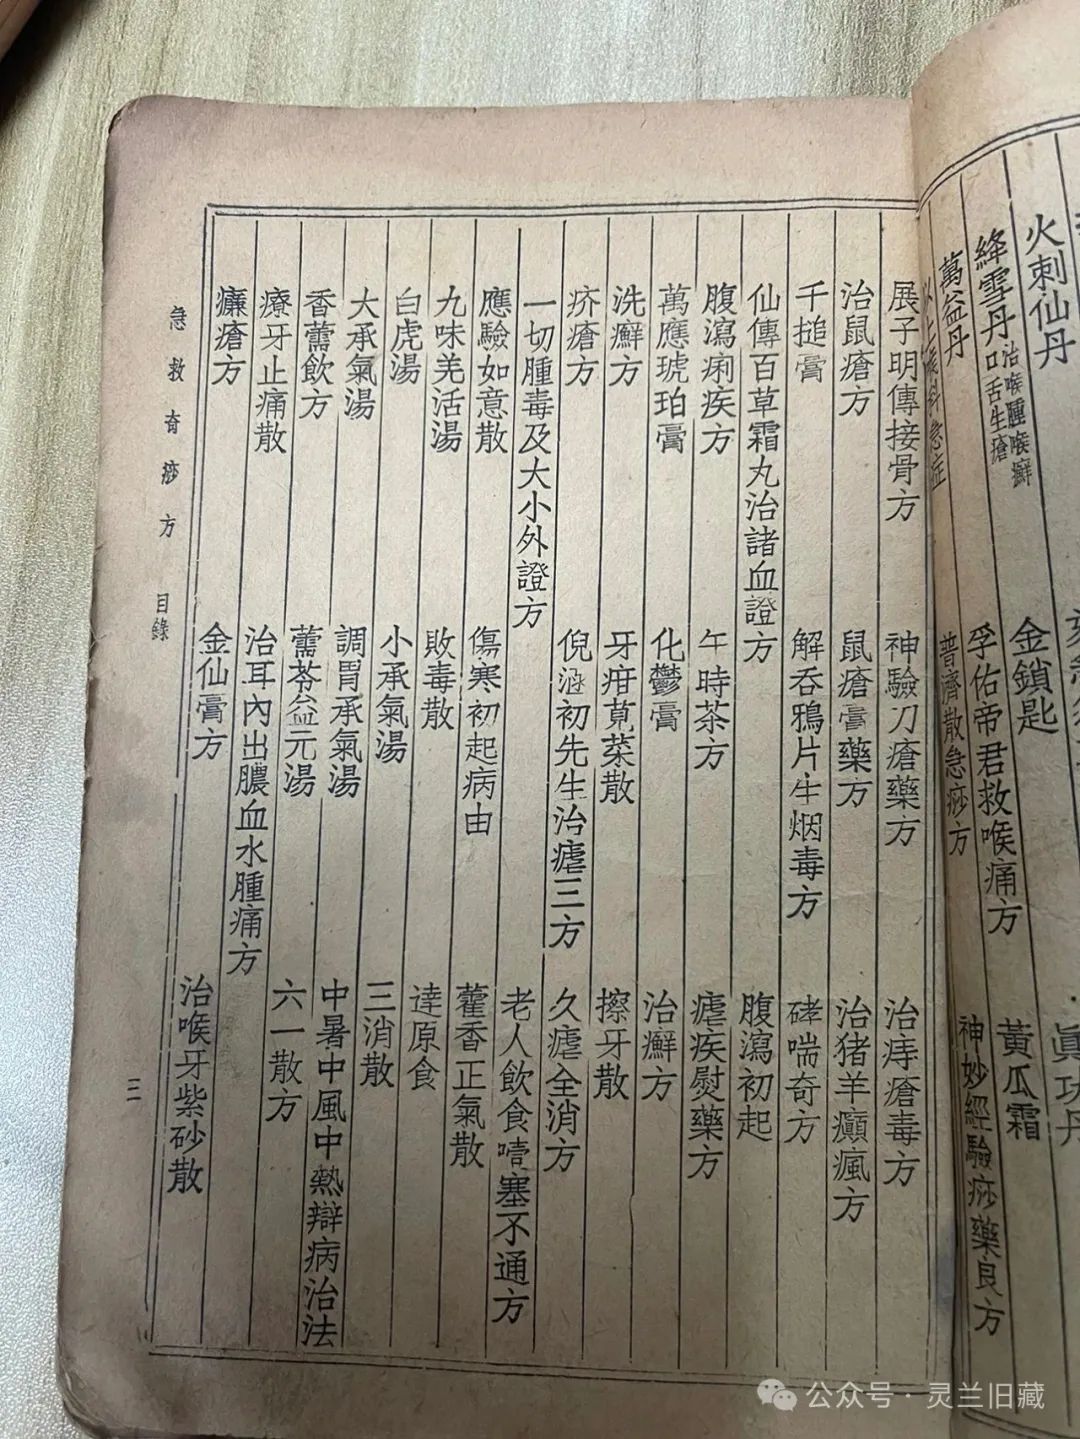 火刺仙丹 金鎖匙
絳雪丹 治喉腫喉癬口舌生瘡 孚佑帝君救喉痛方 黃瓜霜
萬益丹 普濟散急痧方 神妙經驗痧藥良方
展子明傳接骨方 神驗刀瘡藥方 治痔瘡毒方
治鼠瘡方 鼠瘡膏藥方 治猪羊癲瘋方
千搥膏 解吞鴉片生烟毒方 哮喘奇方
仙傳百草霜丸治諸血證方 腹瀉初起
腹瀉痢疾方 午時茶方 瘧疾熨藥方
萬應琥珀膏 化鬱膏 治癬方
洗癬方 牙疳莧菜散 擦牙散
疥瘡方 倪涵初先生治瘧三方 久瘧全消方
一切腫毒及大小外證方 老人飲食噎塞不通方
應驗如意散 傷寒初起病由 藿香正氣散
九味羌活湯 敗毒散 達原食
白虎湯 小承氣湯 三消散
大承氣湯 調胃承氣湯 中暑中風中熱辯病治法
香薷飲方 薷苓益元湯 六一散方
療牙止痛散 治耳內出膿血水腫痛方
臁瘡方 金仙膏方 治喉牙紫砂散
急救奇痧方 目錄 三
公众号·灵兰旧藏